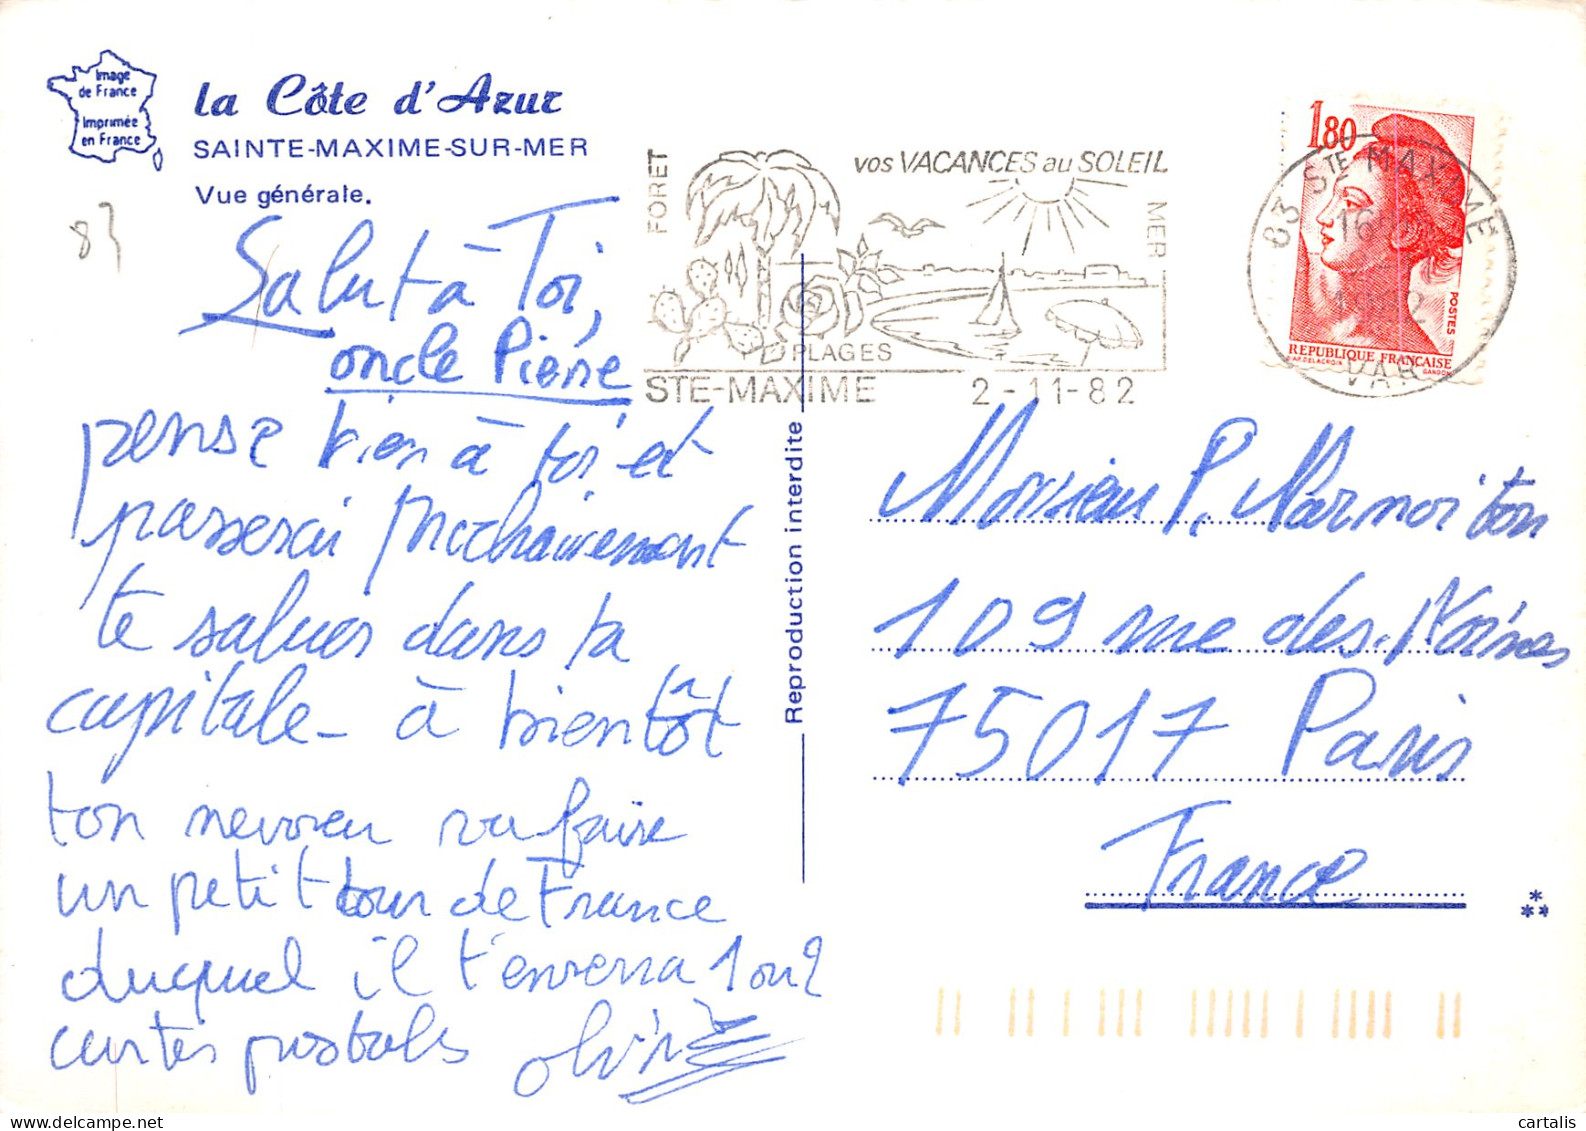 Image
de France
Imprimée
en France
la Côte d'Azur
SAINTE-MAXIME-SUR-MER
Vue générale.
83
Salut à Toi,
oncle Pierre
pense bien à toi et
passerai prochainement
te saluer dans ta
capitale - à bientôt
ton neveu va faire
un petit tour de France
duquel il t'enverra 1 ou 2
cartes postals
Reproduction interdite
FORET
vos VACANCES au SOLEIL
MER
PLAGES
STE-MAXIME 2-11-82
1,80
POSTES
REPUBLIQUE FRANÇAISE
AP. DELACROIX GANDON
83 STE MAXIME
VAR
Monsieur P. Marmoiton
109 rue des Moines
75017 Paris
France
cartalis